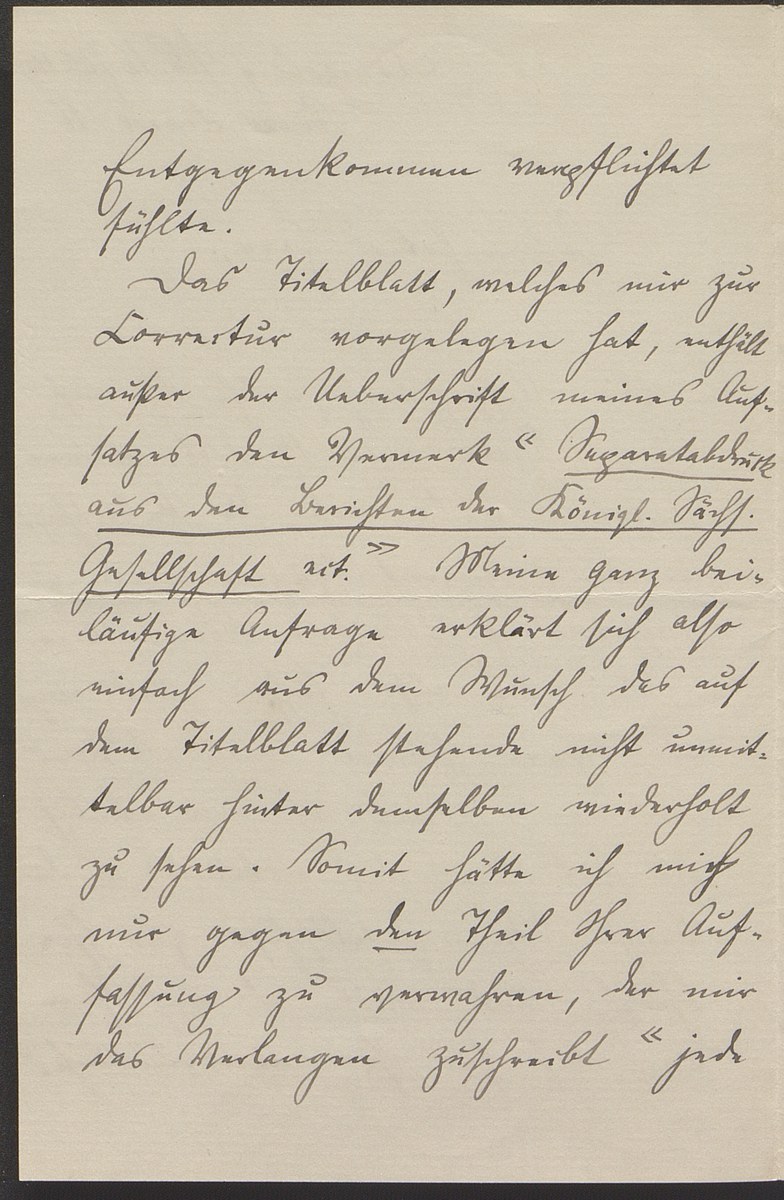 Entgegenkommen verpflichtet
fühlte.
Das Titelblatt, welches mir zur
Correctur vorgelegen hat, enthält
außer der Ueberschrift meines Auf-
satzes den Vermerk « Separatabdruck
aus den Berichten der Königl. Sächs.
Gesellschaft ect. » Meine ganz bei-
läufige Anfrage erklärt sich also
einfach aus dem Wunsch das auf
dem Titelblatt stehende nicht unmit-
telbar hinter demselben wiederholt
zu sehen. Somit hätte ich mich
nur gegen den Theil Ihrer Auf-
fassung zu verwahren, der mir
das Verlangen zuschreibt « jede